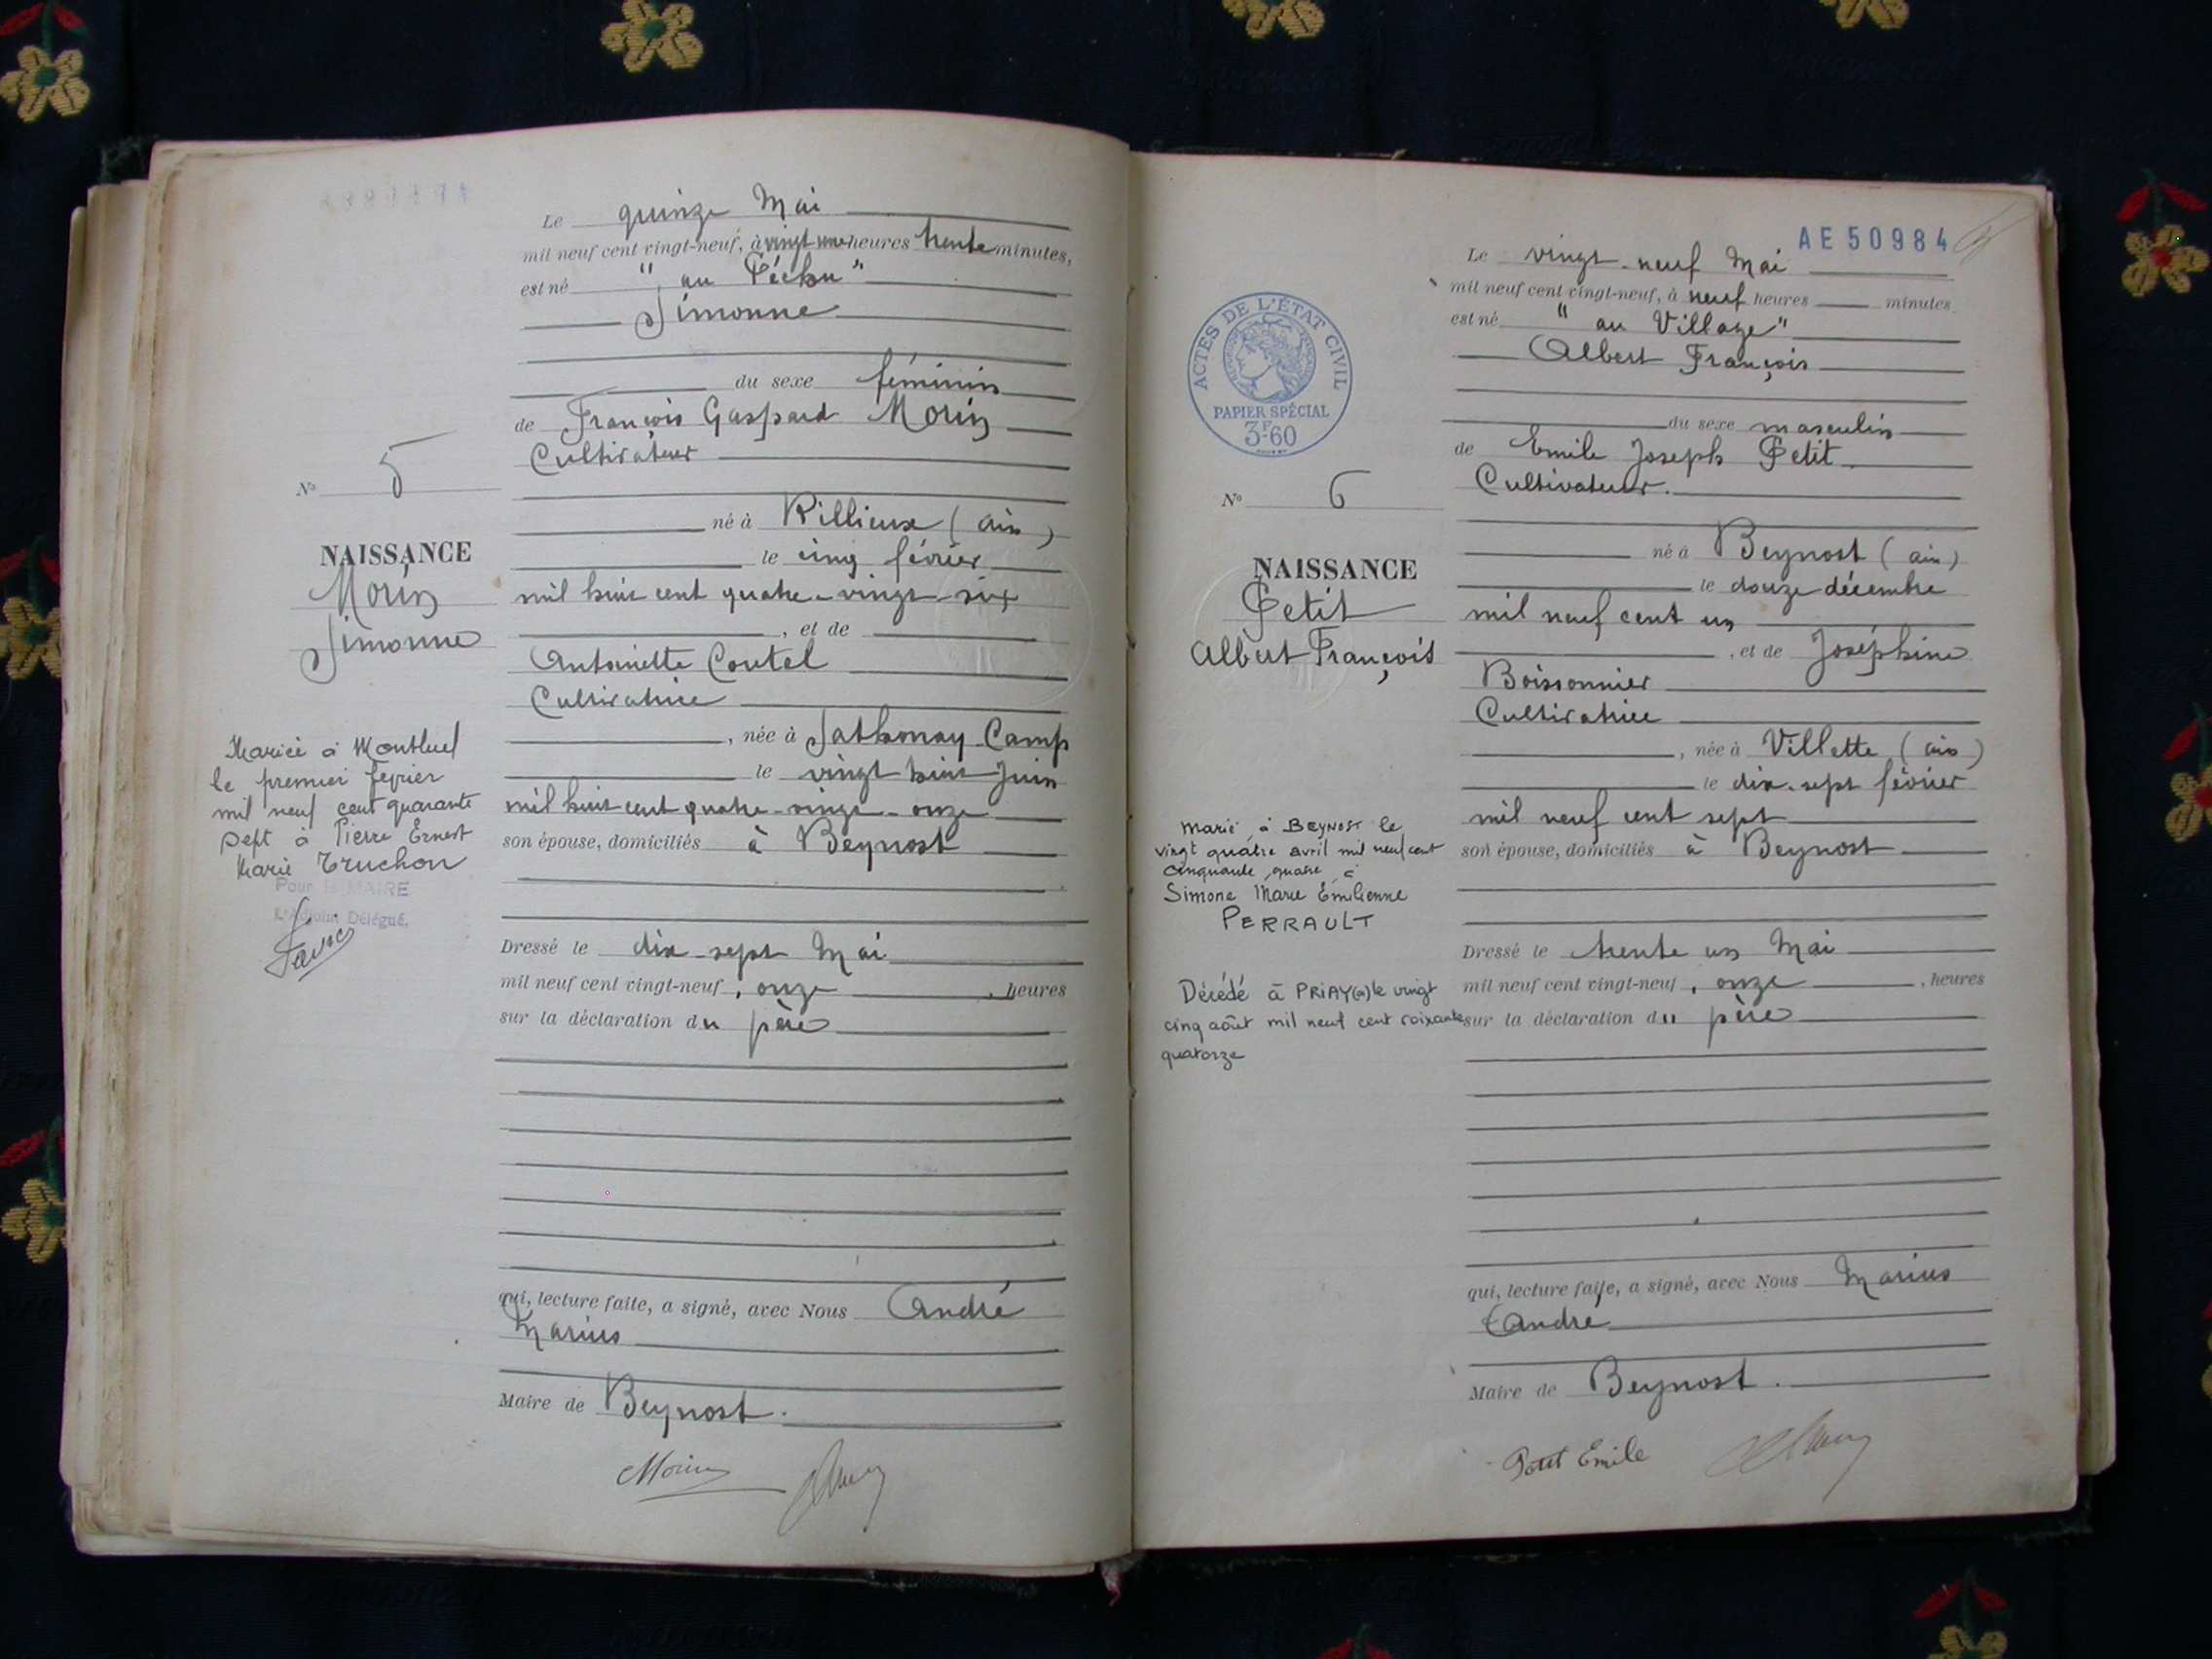 Le quinze Mai
mil neuf cent vingt-neuf, à vingt une heures trente minutes,
est né " au Péchu "
Simonne
du sexe féminin
de François Gaspard Morin
Cultivateur
né à Rillieux (Ain)
le cinq février
mil huit cent quatre-vingt-six
, et de
Antoinette Coutel
Cultivatrice
, née à Sathonay-Camp
le vingt huit Juin
mil huit cent quatre-vingt-onze
son épouse, domiciliés à Beynost
Dressé le dix-sept Mai
mil neuf cent vingt-neuf, onze , heures
sur la déclaration du père
qui, lecture faite, a signé, avec Nous André
Marius
Maire de Beynost.
Morin
No 5
NAISSANCE
Morin
Simonne
Mariée à Montluel
le premier février
mil neuf cent quarante
sept à Pierre Ernest
Marie Truchon
Pour le MAIRE
L'Adjoint Délégué.
AE 50984
Le vingt-neuf Mai
mil neuf cent vingt-neuf, à neuf heures minutes
est né " au Village "
Albert François
du sexe masculin
de Emile Joseph Petit
Cultivateur.
né à Beynost (ain)
le douze décembre
mil neuf cent un
, et de Joséphine
Boissonnier
Cultivatrice
, née à Villette (ain)
le dix-sept février
mil neuf cent sept
son épouse, domiciliés à Beynost
Dressé le trente un Mai
mil neuf cent vingt-neuf, onze , heures
sur la déclaration du père
qui, lecture faite, a signé, avec Nous Marius
André
Maire de Beynost.
Petit Emile
ACTES DE L'ÉTAT CIVIL
PAPIER SPÉCIAL
3F60
No 6
NAISSANCE
Petit
Albert François
Marié à BEYNOST le
vingt quatre avril mil neuf cent
cinquante quatre à
Simone Marie Emilienne
PERRAULT
Décédé à PRIAY le vingt
cinq août mil neuf cent soixante
quatorze